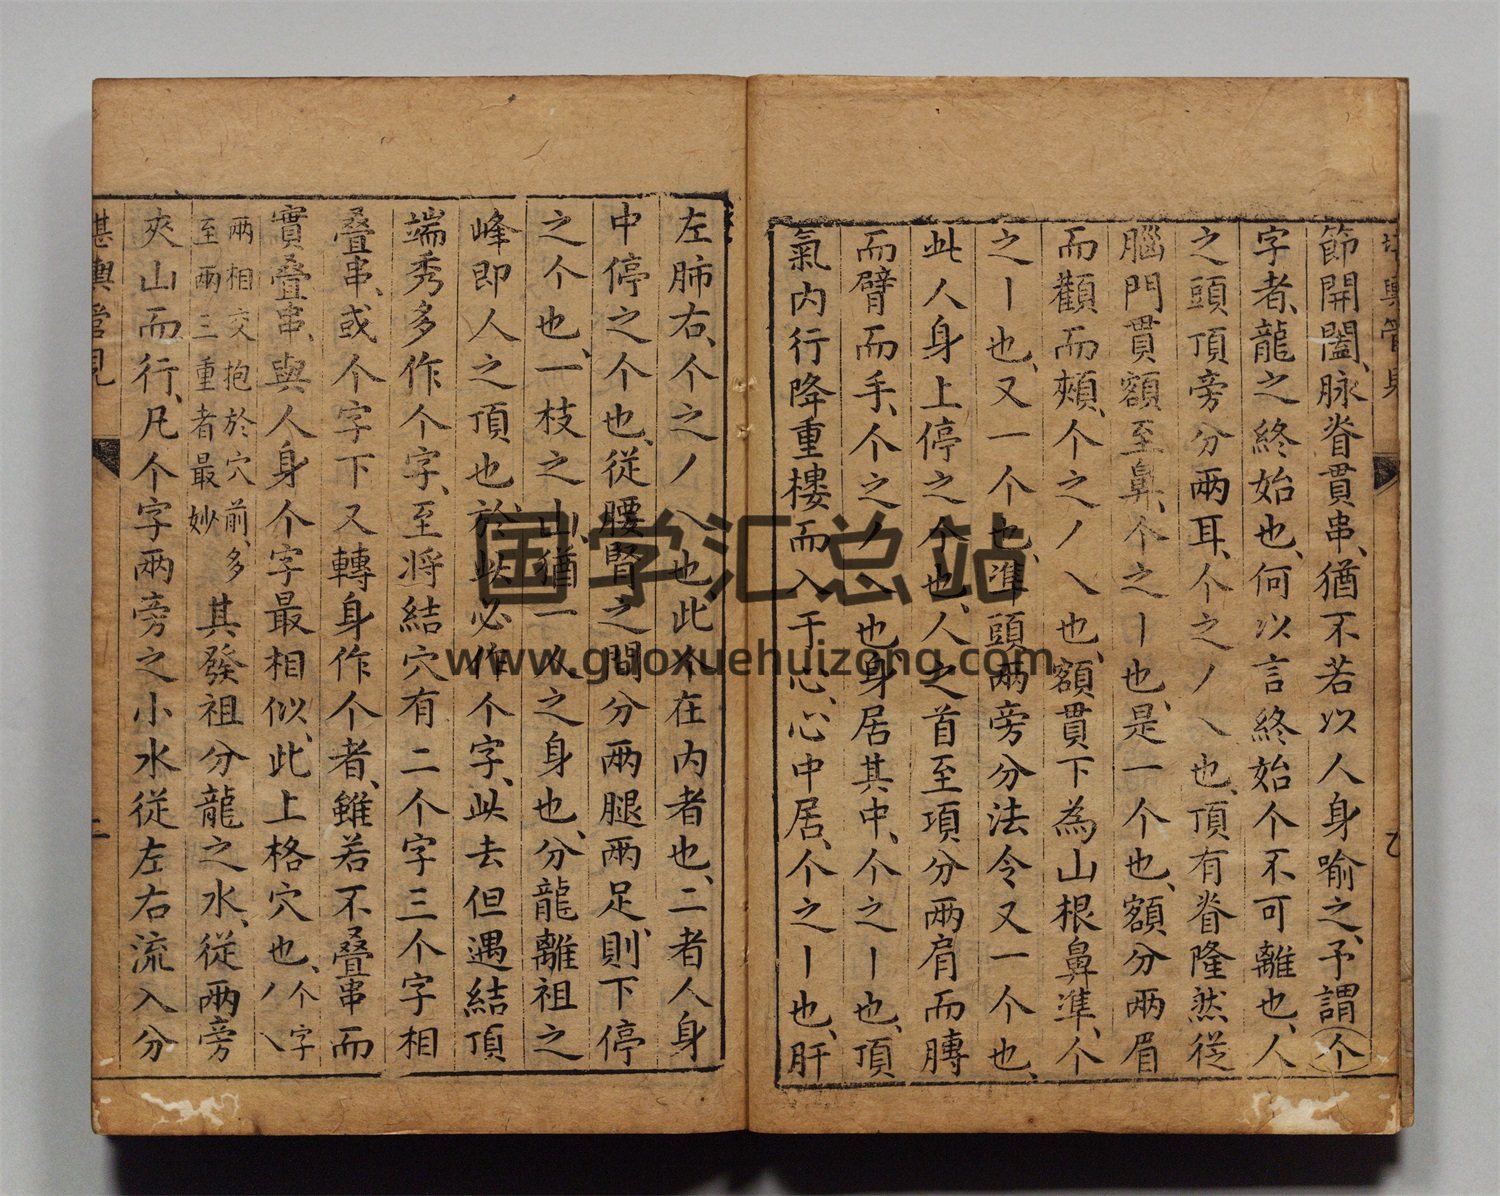 節開闔、脉脊貫串、猶不若以人身喻之、予謂个
字者、龍之終始也、何以言終始个不可離也、人
之頭頂旁分兩耳、个之丿乀也、頂有脊隆然從
腦門貫額至鼻、个之丨也、是一个也、額分兩眉
而顴而頰、个之丿乀也、額貫下為山根鼻準、个
之丨也、又一个也、準頭兩旁分法令又一个也、
此人身上停之个也、人之首至項分兩肩而膊
而臂而手、个之丿乀也身居其中、个之丨也、頂
氣内行降重樓而入于心、心中居、个之丨也、肝
左肺右、个之丿乀也此个在内者也、二者人身
中停之个也、從腰腎之間分兩腿兩足、則下停
之个也、一枝之山、猶一人之身也、分龍離祖之
峰即人之頂也於此必作个字、此去但遇結頂
端秀多作个字、至将結穴有二个字三个字相
叠串、或个字下又轉身作个者、雖若不叠串而
實叠串、與人身个字最相似、此上格穴也、个字丿乀
兩相交抱於穴前、多
至兩三重者最妙
其發祖分龍之水、從兩旁
夾山而行、凡个字兩旁之小水從左右流入分
堪輿管見
二
国学汇总站
www.guoxuehuizong.com